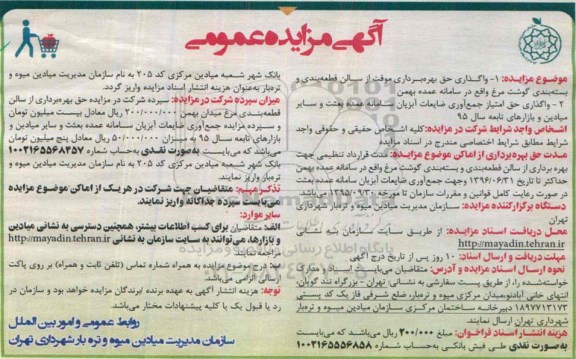 آگهی مزایده عمومی
موضوع مزایده: ۱- واگذاری حق بهره‌برداری موقت از سالن قطعه‌بندی و
بسته‌بندی گوشت مرغ واقع در سامانه عمده بهمن
۲ - واگذاری حق امتیاز جمع‌آوری ضایعات آبزیان سامانه عمده بعثت و سایر
میادین و بازارهای تابعه سال ۹۵
اشخاص واجد شرایط شرکت در مزایده: کلیه اشخاص حقیقی و حقوقی واجد
شرایط مطابق شرایط اختصاصی مندرج در اسناد مزایده
مدت حق بهره‌برداری از اماکن موضوع مزایده: مدت قرارداد تنظیمی جهت
بهره برداری از سالن قطعه‌بندی و بسته‌بندی گوشت مرغ واقع در سامانه عمده بهمن
حداکثر تا تاریخ ۱۳۹۶/۰۶/۳۱ وجهت جمع‌آوری ضایعات آبزیان سامانه عمده بعثت
در صورت رعایت کامل قوانین و مقررات سازمان تا مورخه ۱۳۹۵/۰۹/۳۰ می‌باشد.
دستگاه برگزارکننده مزایده: سازمان مدیریت میادین میوه و تره‌بار شهرداری
تهران
محل دریافت اسناد مزایده: از طریق سایت سازمان به نشانی
http://mayadin.tehran.ir
مهلت دریافت و ارسال اسناد: ۱۰ روز پس از تاریخ درج آگهی
نحوه ارسال اسناد مزایده و آدرس: متقاضیان می‌بایست اسناد و مدارک
خواسته‌شده را، از طریق پست سفارشی به نشانی: تهران - بزرگراه تند گویان،
انتهای خانی آبادنو،میدان مرکزی میوه و تره‌بار، ضلع شرقی فاز یک کد پستی
۱۸۹۷۷۱۳۱۷۳ دبیرخانه ساختمان مرکزی سازمان میادین میوه و تره‌بار
شهرداری تهران ارسال نمایند.
هزینه انتشار اسناد فراخوان: مبلغ ۲۰۰/۰۰۰ ریال می‌باشد که می‌بایست
به صورت نقدی طی فیش بانکی به‌حساب شماره ۱۰۰۲۱۶۵۵۵۶۸۵۸
بانک شهر شعبه میادین مرکزی کد ۲۰۵ به نام سازمان مدیریت میادین میوه و
تره‌بار به‌عنوان هزینه انتشار اسناد مزایده واریز گردد.
میزان سپرده شرکت در مزایده: سپرده شرکت در مزایده حق بهره‌برداری از سالن
قطعه‌بندی مرغ میدان بهمن ۲۰۰/۰۰۰/۰۰۰ ریال معادل بیست میلیون تومان
و سپرده مزایده جمع‌آوری ضایعات آبزیان سامانه عمده بعثت و سایر میادین و
بازارهای تابعه سال ۹۵ به میزان ۵۰/۰۰۰/۰۰۰ ریال معادل پنج میلیون تومان
می‌باشد که می‌بایست به صورت نقدی به‌حساب شماره ۱۰۰۲۱۶۵۵۶۸۴۵۷
بانک شهر شعبه میادین مرکزی کد ۲۰۵ به نام سازمان مدیریت میادین میوه و
تره‌بار واریز نمایند.
تذکر مهم: متقاضیان جهت شرکت در هر یک از اماکن موضوع مزایده
می‌بایست سپرده جداگانه واریز نمایند.
سایر موارد:
الف: متقاضیان برای کسب اطلاعات بیشتر، همچنین دسترسی به نشانی میادین
و بازارها، می‌توانند به سایت سازمان به نشانی http://mayadin.tehran.ir
مراجعه نمایند
ب: درج موضوع مزایده به همراه شماره تماس (تلفن ثابت و همراه) بر روی پاکت
ارسالی الزامی می‌باشد.
توجه: هزینه انتشار آگهی به عهده برنده /برندگان مزایده خواهد بود و سازمان در
رد یا قبول یک یا کلیه پیشنهادات مختار می‌باشد.
روابط عمومی و امور بین الملل
سازمان مدیریت میادین میوه و تره بار شهرداری تهران